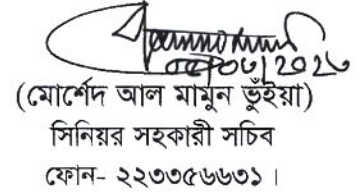 (মোর্শেদ আল মামুন ভূঁইয়া)
সিনিয়র সহকারী সচিব
ফোন- ২২৩৩৫৬৬৩১।